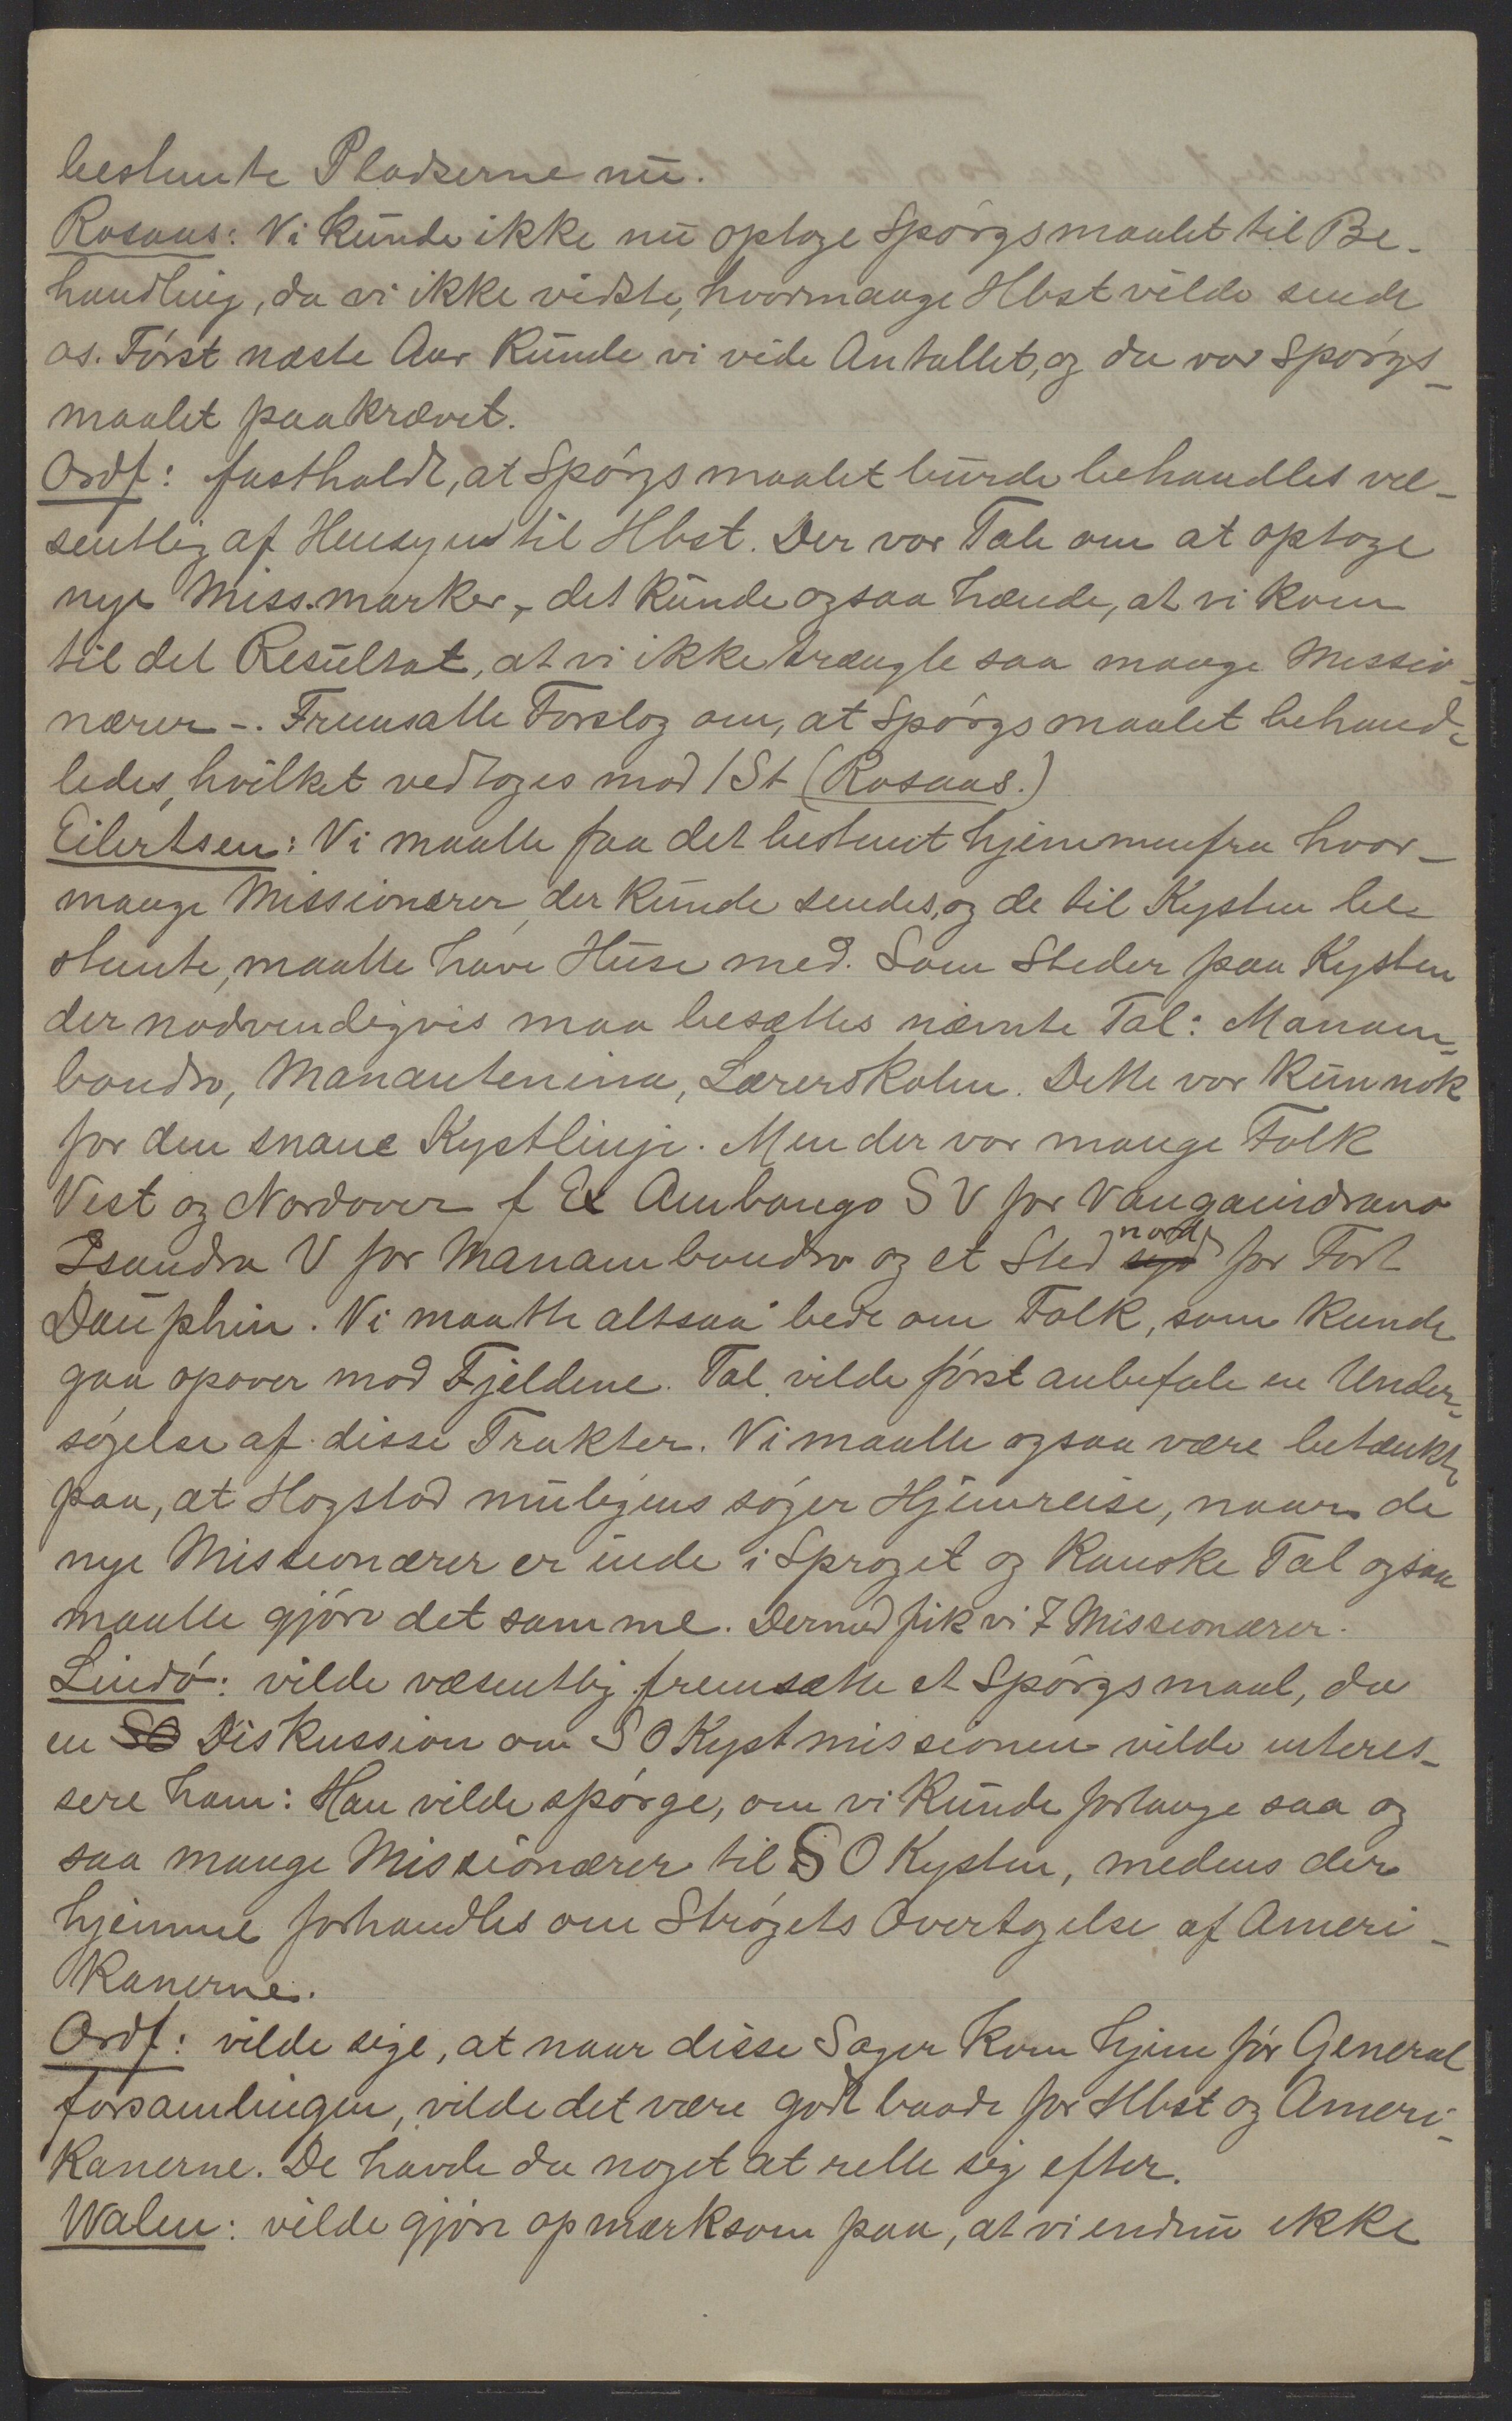 bestemte Pladserne nu.
Rosaas: Vi kunde ikke nu optage Spörgsmaalet til Be-
handling, da vi ikke vidste, hvormange Hbst vilde sende
os. Först næste Aar kunde vi vide Antallet, og da var Spörgs-
maalet paakrævet.
Ordf: fastholdt, at Spörgsmaalet burde behandles væ-
sentlig af Hensyn til Hbst. Der var Tale om at optage
nye Miss.marker, det kunde ogsaa hænde, at vi kom
til det Resultat, at vi ikke trængte saa mange Missio-
nærer -. Fremsatte Forslag om, at Spörgsmaalet behand-
ledes, hvilket vedtoges mod 1 St (Rosaas.)
Eilertsen: Vi maatte faa det bestemt hjemmenfra hvor-
mange Missionærer der kunde sendes, og de til Kysten be-
stemte, maatte have Huse med. Som Steder paa Kysten
der nodvendigvis maa besættes nævnte Tal: Manam-
bondro, Manantenina, Lærerskolen. Dette var kun nok
for den snave Kystlinje. Men der var mange Folk
Vest og Nordover f Ex Ambongo S V for Vangaindrano
Isandra V for Manambondro og et Sted syd nord for Fort
Dauphin. Vi maatte altsaa bede om Folk, som kunde
gaa opover mod Fjeldene. Tal. vilde först anbefale en Under-
sögelse af disse Trakter. Vi maatte ogsaa være betænkte
paa, at Hogstad muligens söger Hjemreise, naar de
nye Missionærer er inde i Sproget og kanske Tal ogsaa
maatte gjöre det samme. Dermed fik vi 7 Missionærer.
Lindö: vilde væsentlig fremsætte et Spörgsmaal, da
en SO Diskussion om S O Kystmissionen vilde interes-
sere ham: Han vilde spörge, om vi kunde forlange saa og
saa mange Missionærer til S O Kysten, medens der
hjemme forhandles om Strögets Overtagelse af Ameri-
kanerne.
Ordf: vilde sige, at naar disse Sager kom hjem för General
forsamlingen, vilde det være godt baade for Hbst og Ameri-
kanerne. De havde da noget at rette sig efter.
Walen: vilde gjöre opmærksom paa, at vi endnu ikke